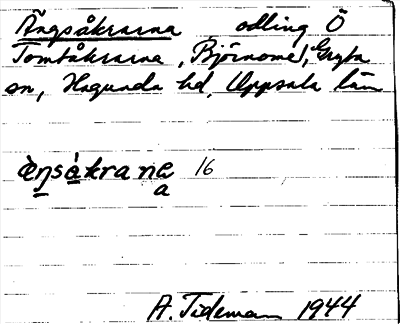 Ängsåkrarna, odling Ö
Tomtåkrarna, Björnome, Gryta
sn, Hagunda hd, Uppsala län
æ̀ŋså̀krane 16
a
A. Tideman 1944